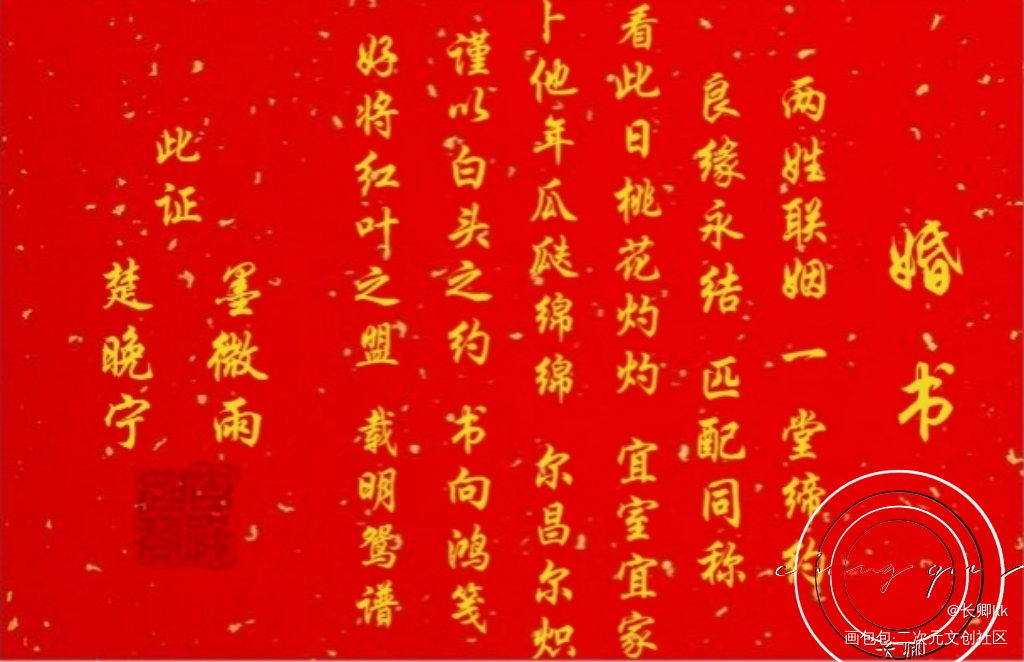 婚书
两姓联姻 一堂缔约
良缘永结 匹配同称
看此日桃花灼灼 宜室宜家
卜他年瓜瓞绵绵 尔昌尔炽
谨以白头之约 书向鸿笺
好将红叶之盟 载明鸳谱
此证
墨微雨
楚晚宁
@长卿kk
画包包·二次元文创社区
长卿